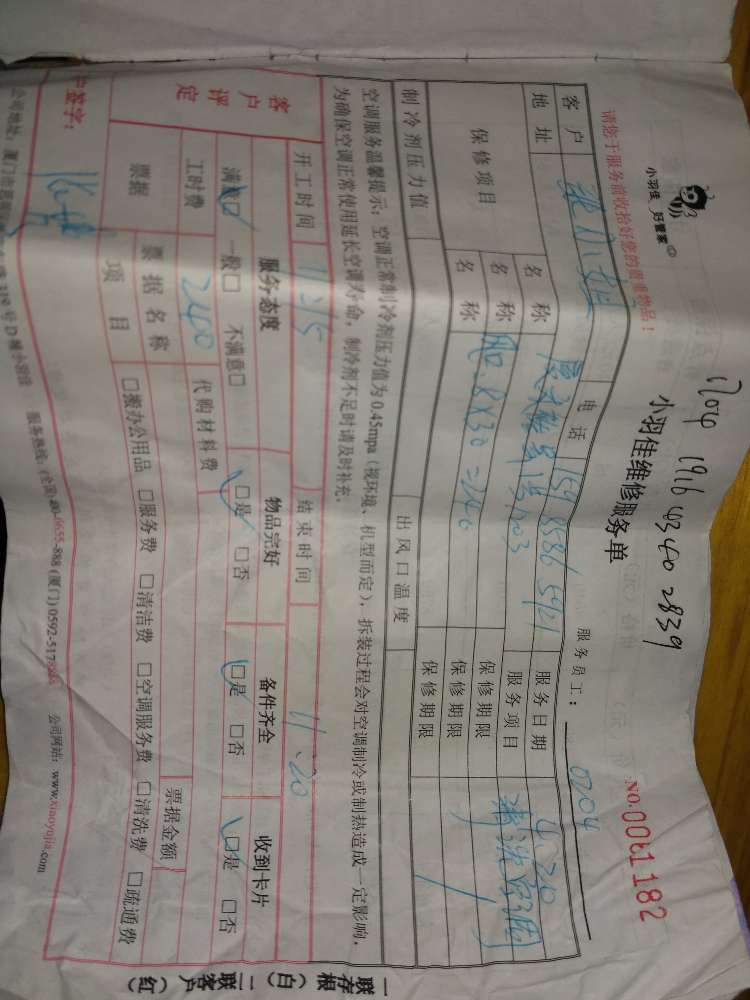 1704 1916 4340 2839
小羽佳 好管家
小羽佳维修服务单
NO.0061182
请您于服务前收拾好您的贵重物品！
服务员工： 0204
客户 电话 159 8586 5921 服务日期 4.20
地址 服务项目 清洗空调
保修项目 名称 保修期限
名称 8X30=240 保修期限
名称 保修期限
制冷剂压力值 出风口温度
空调服务温馨提示：空调正常制冷剂压力值为0.45mpa（视环境、机型而定），拆装过程会对空调制冷或制热造成一定影响，
为确保空调正常使用延长空调寿命，制冷剂不足时请及时补充。
开工时间 结束时间 11:20
客户评定 服务态度 物品完好 备件齐全 收到卡片
满意□ 一般□ 不满意□ □是 □否 □是 □否 □是 □否
工时费 240 代购材料费 票据金额
票据 票据名称项目 □搬办公用品 □服务费 □清洁费 □空调服务费 □清洗费 □疏通费
户签字：
公司地址：厦门市 号D栋小羽佳 服务热线：(全国)400-6655-888 (厦门)0592-517 公司网站：www.xiaoyujia.com
一联存根（白） 二联客户（红）